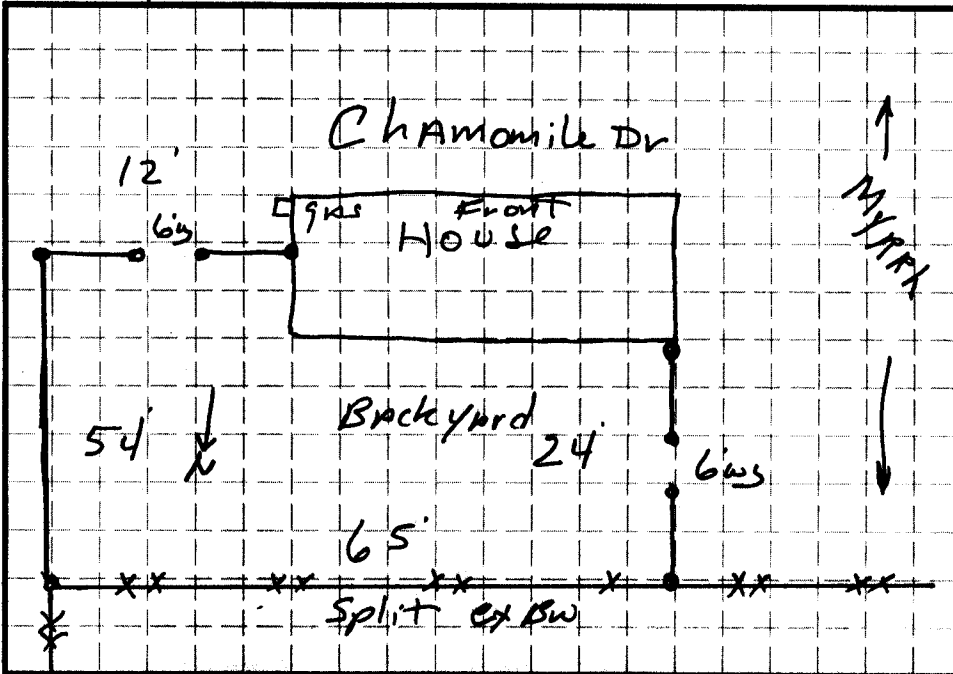 Chamomile Dr
12'
6'wg
gas
Front
House
Myrrh
Backyard
54'
N
24'
6'wg
65'
Split ex BW